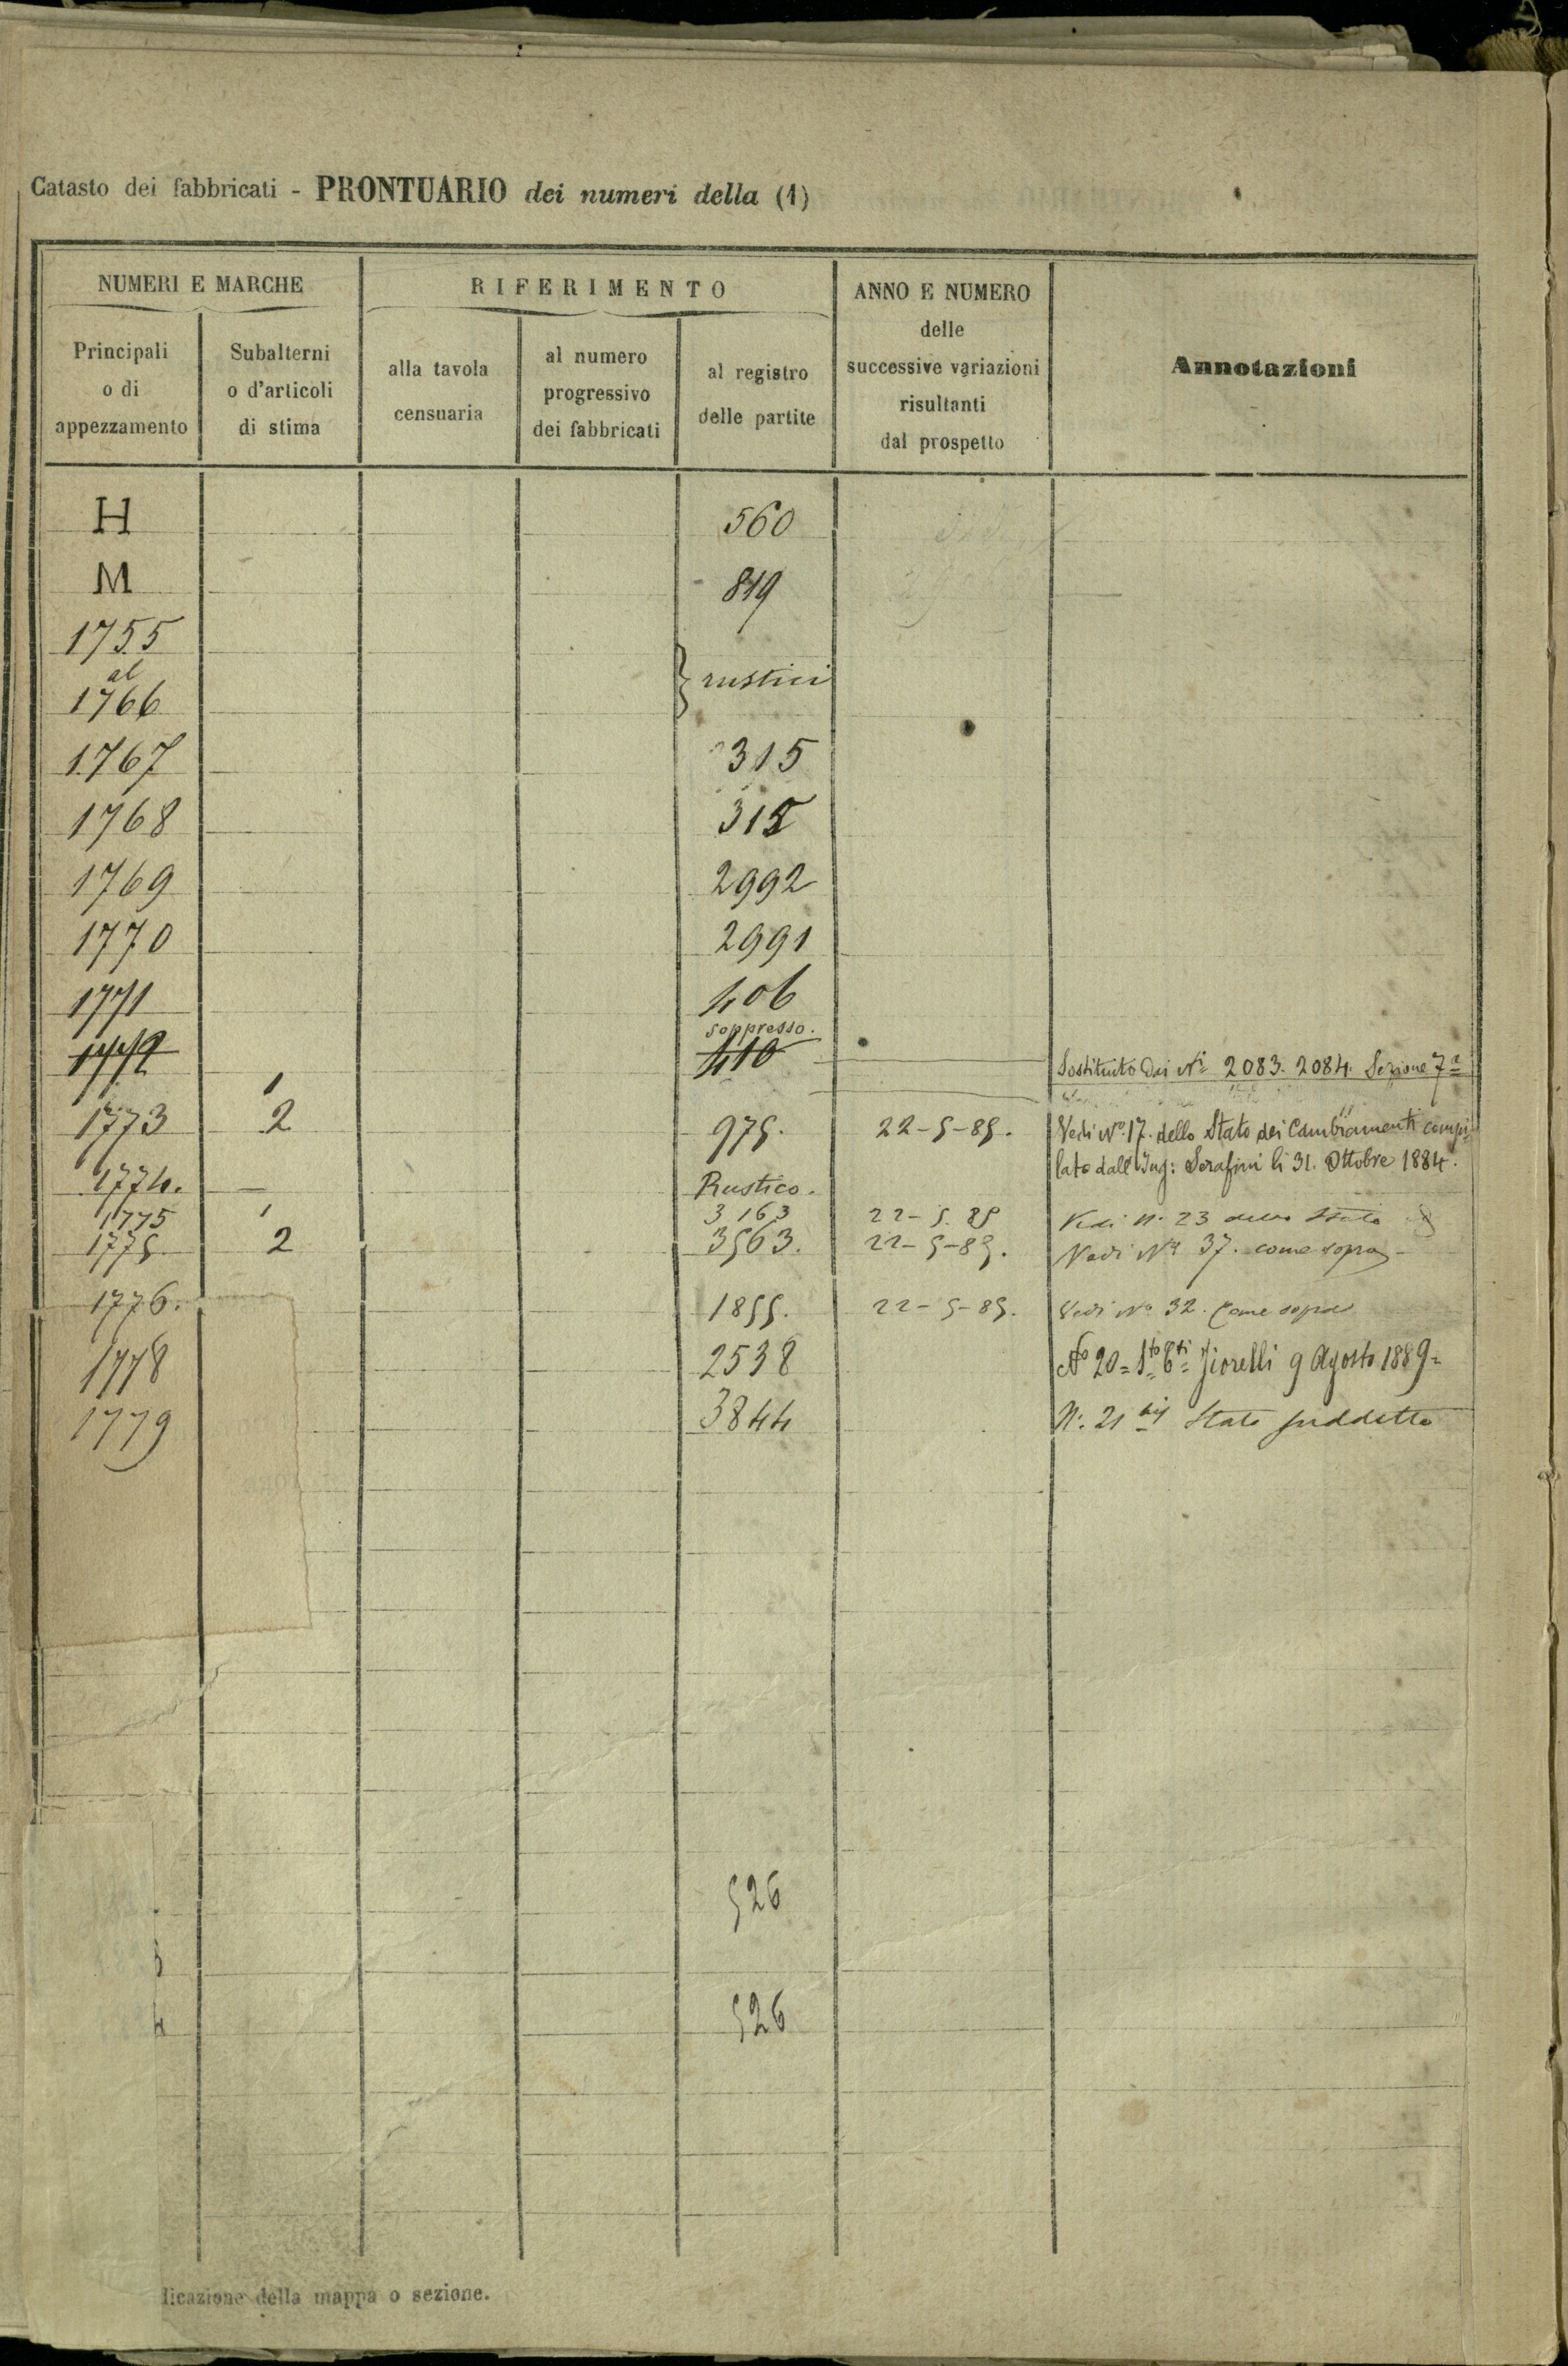 Catasto dei fabbricati - PRONTUARIO dei numeri della (1)
NUMERI E MARCHE
RIFERIMENTO
ANNO E NUMERO
delle
successive variazioni
risultanti
dal prospetto
Annotazioni
Principali
o di
appezzamento
Subalterni
o d'articoli
di stima
alla tavola
censuaria
al numero
progressivo
dei fabbricati
al registro
delle partite
H 560
M 819
1755
al
1766 } rustici
1767 315
1768 315
1769 2992
1770 2991
1771 406
soppresso.
1772 410 Sostituito dai Ni 2083. 2084. Sezione 7a
1
1773 2 975. 22-5-85. Vedi No. 17. dello Stato dei Cambiamenti compi-
lato dall'Ing: Serafini li 31. Ottobre 1884.
1774. Rustico.
1775 1 3163 22-5.85 Vedi N. 23 dello Stato
1775 2 3563. 22-5-85. Vedi No 37. come sopra
1776. 1855. 22-5-85. Vedi No 32. Come sopra
1778 2538 No 20= Sto Cti= Fiorelli 9 Agosto 1889=
1779 3844 N. 21 bis Stato suddetto
526
526
licazione della mappa o sezione.